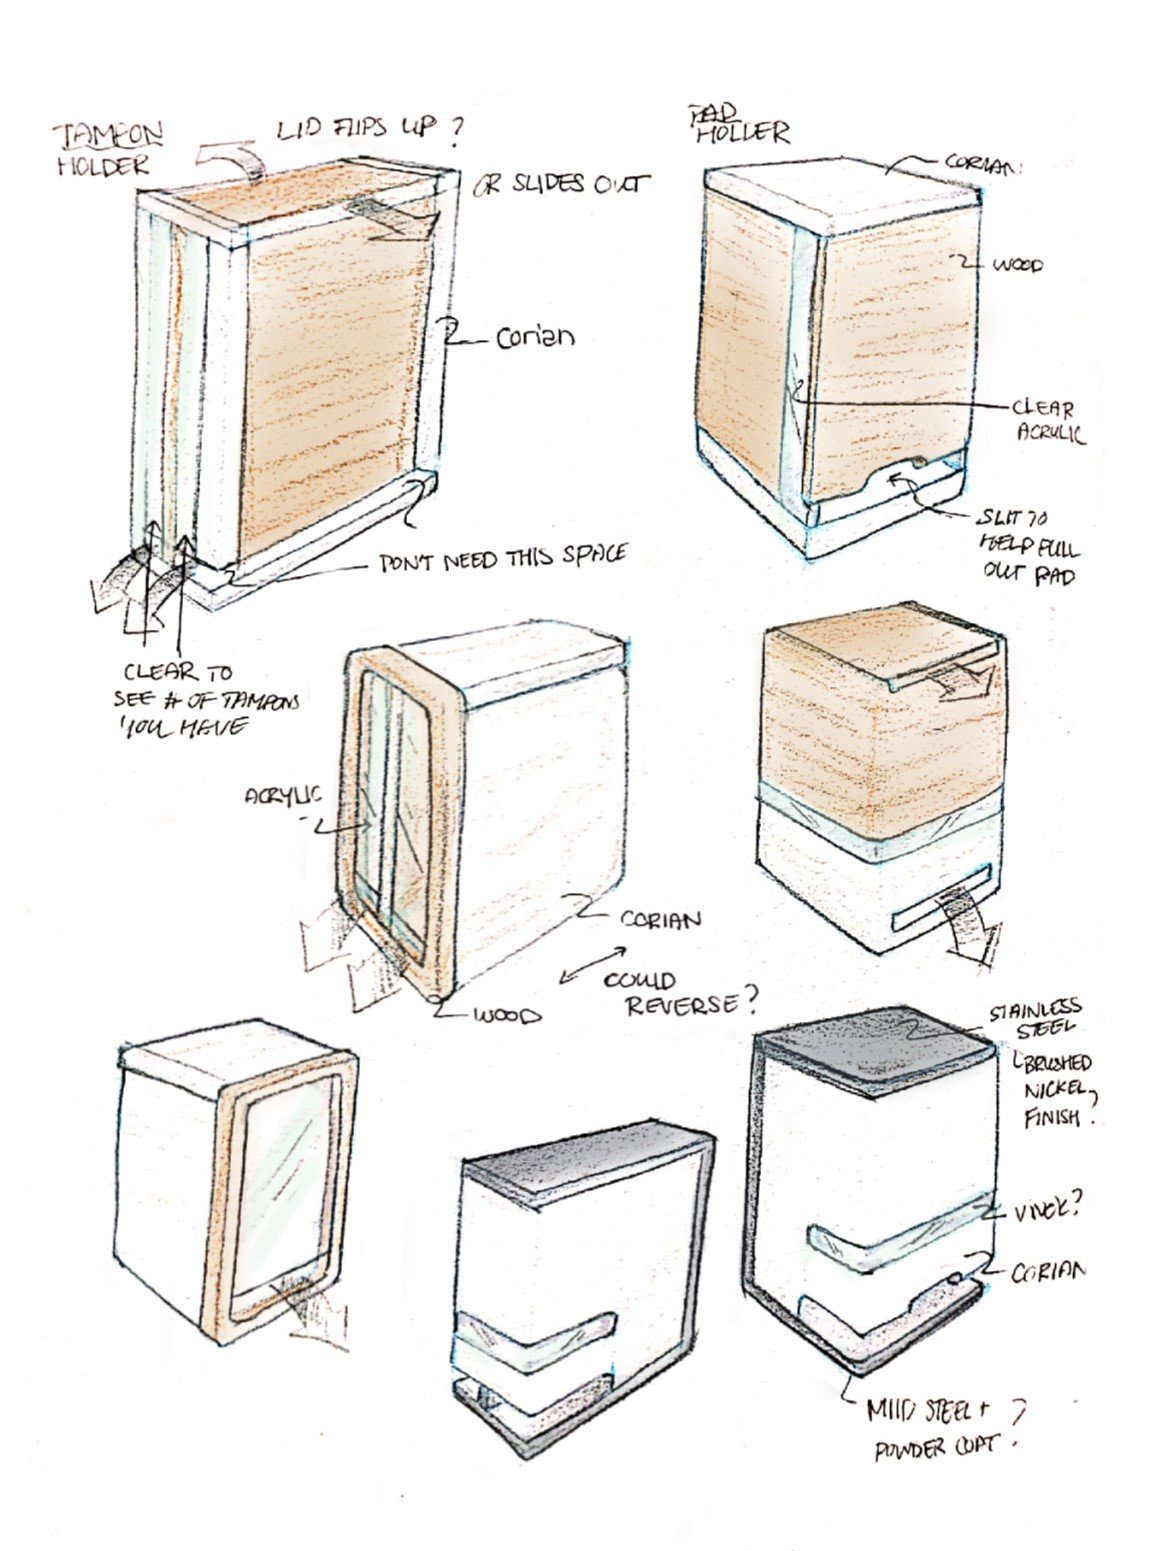 TAMPON
HOLDER
LID FLIPS UP?
OR SLIDES OUT
Corian
DON'T NEED THIS SPACE
CLEAR TO
SEE # OF TAMPONS
YOU HAVE
PAD
HOLDER
CORIAN
WOOD
CLEAR
ACRYLIC
SLIT TO
HELP PULL
OUT PAD
ACRYLIC
CORIAN
COULD
REVERSE?
WOOD
STAINLESS
STEEL
BRUSHED
NICKEL
FINISH?
CORIAN
MILD STEEL +
POWDER COAT?